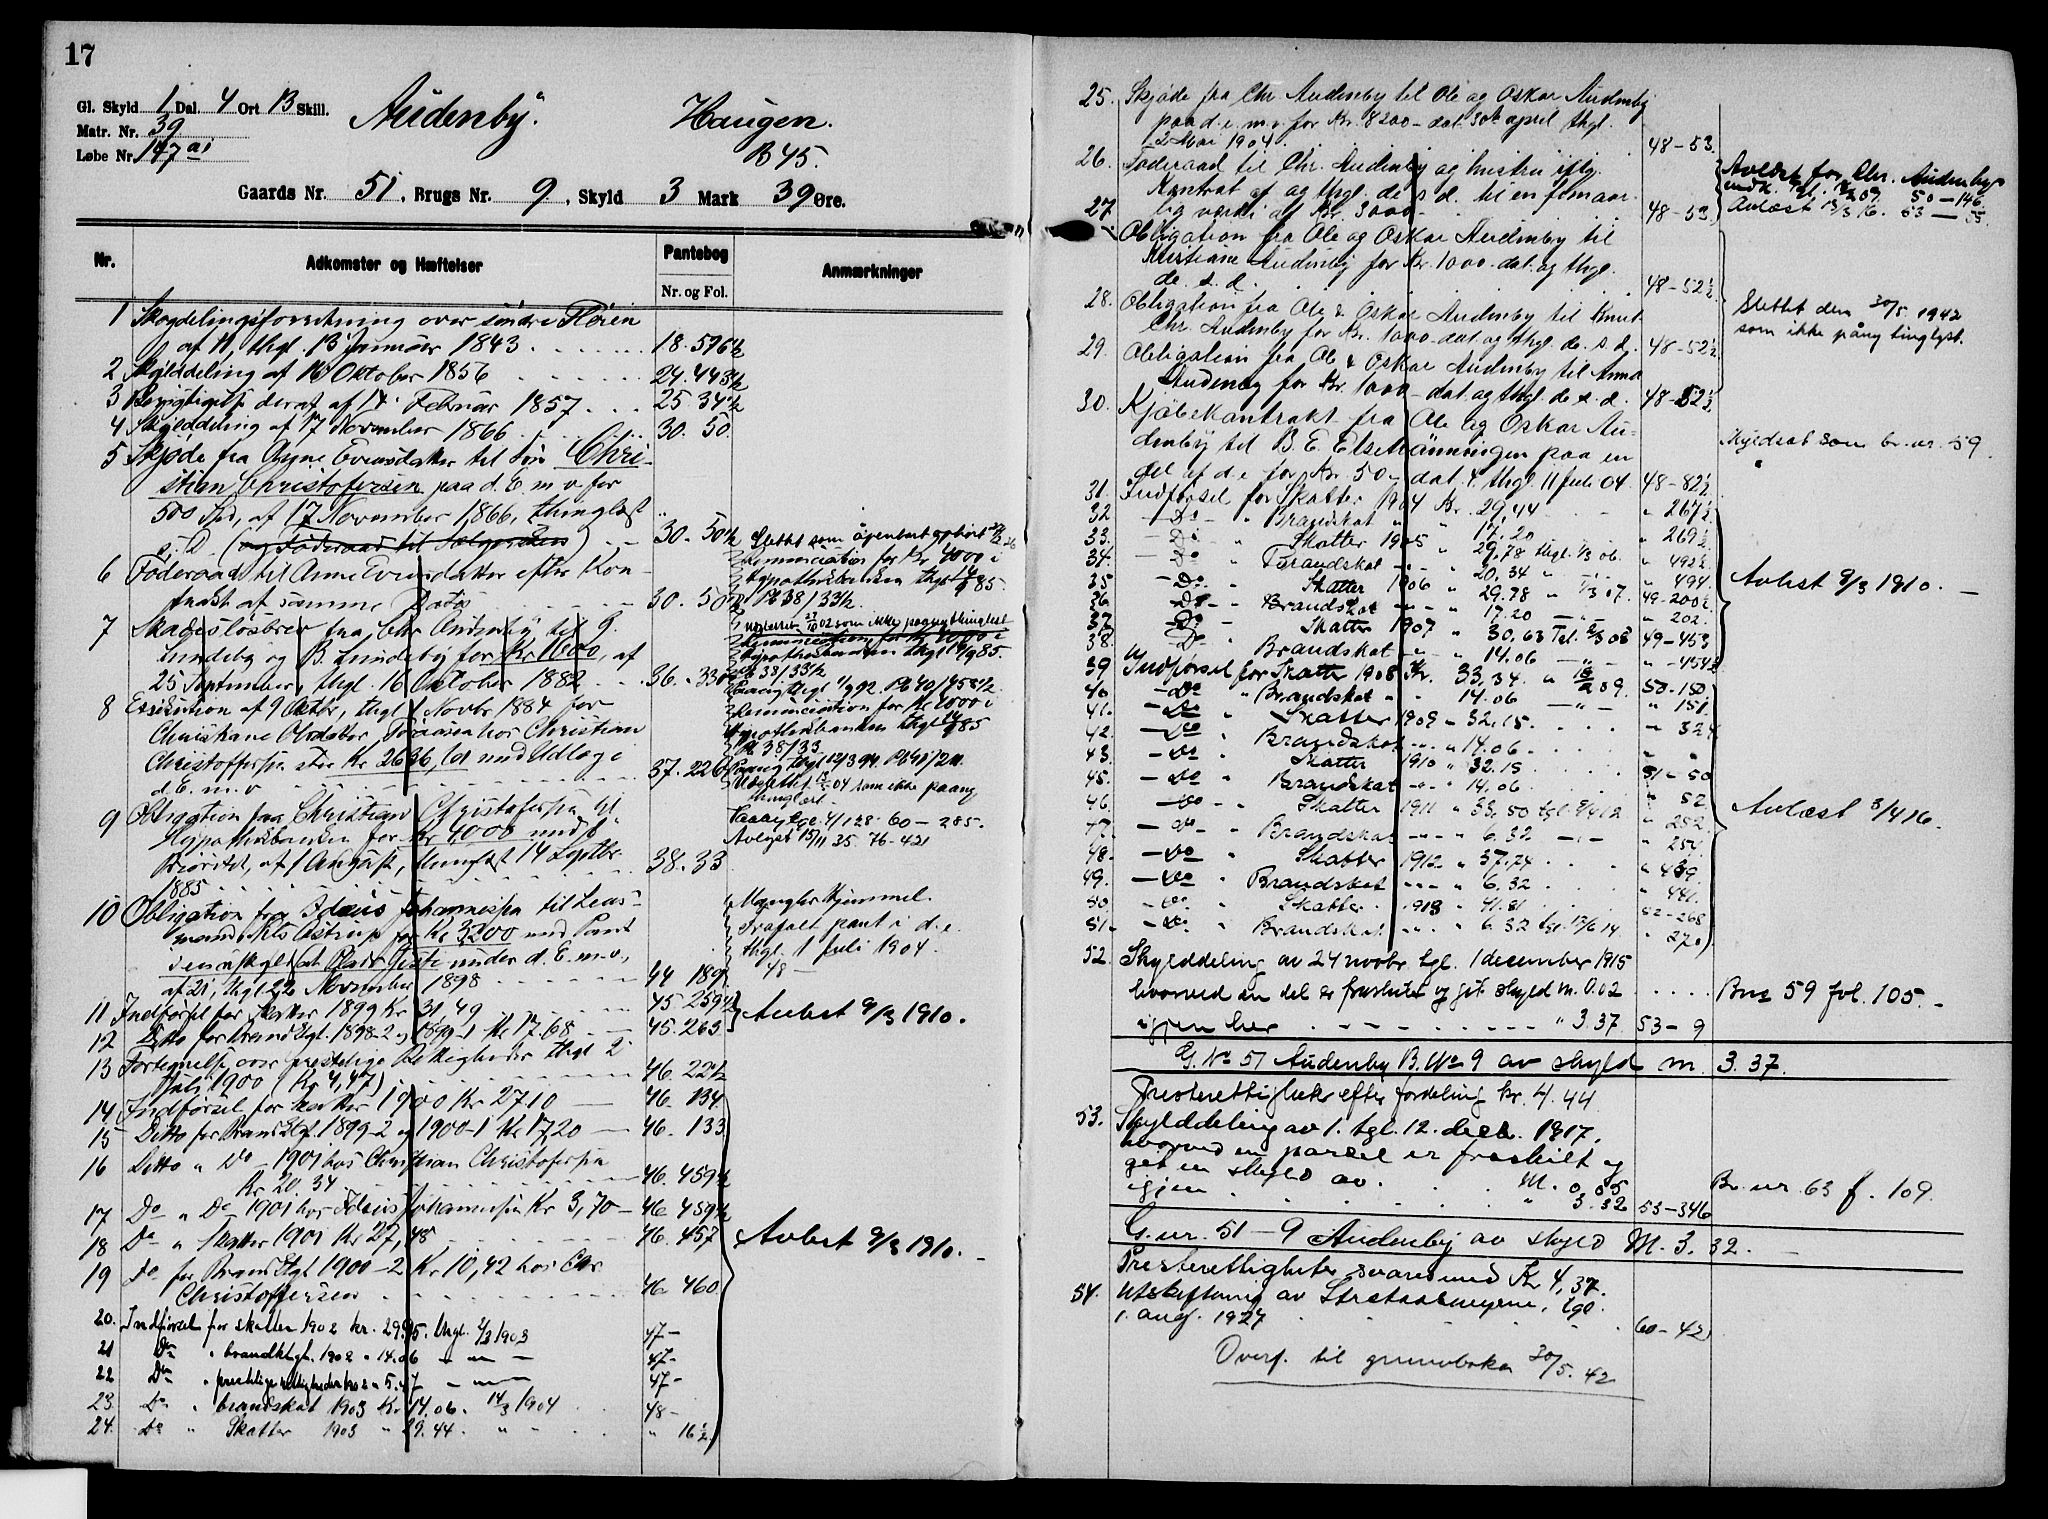 17
Gl. Skyld 1 Dal. 4 Ort 13 Skill.
Matr. Nr. 39
Løbe Nr. 147 a1
Audenby. Haugen.
B 45.
Gaards Nr. 51, Brugs Nr. 9, Skyld 3 Mark 39 Øre.
Nr. Adkomster og Hæftelser Pantebog Anmærkninger
Nr. og Fol.
1 Skogdelingsforretning over søndre
af 11, thgl. 13 Januar 1843 18. 596½
2 Skylddeling af 16 Oktober 1856 24. 443½
3 deraf af 17 Februar 1857 25. 34½
4 Skylddeling af 17 November 1866 30. 50.
5 Skjøde fra Evensdatter til Søn Chri-
stian Christofersen paa d. E. m. v. for
500 Spd, af 17 November 1866, thinglæst
s. D. (og Føderaad til ) 30. 50½
6 Føderaad til Anne Evensdatter efter Kon-
trakt af samme Dato 30. 50
7 Skadesløsbrev fra Chr Audenby til G.
Lundeby og B. Lundeby for Kr 1600, af
25 September, thgl. 16 Oktober 1882 36. 330
8 Exekution af 9 Oktbr, thgl 1 Novbr 1884 for
Christiane Olsdatter hos Christian
Christoffersen stor Kr 2636, med Udlæg i
d. E. m. v 37. 226
9 Obligation fra Christian Christofersen til
Hypothekbanken for Kr 4000 med 1
Prioritet, af 1 August, thinglæst 14 Septbr
1885 38. 33
10 Obligation fra Idæus Johannessen til Lens-
mand Astrup for Kr 3200 med Pant
under d. E. m. v.,
af 21, thgl 22 November 1898 44 189
11 Indførsel for Skatter 1899 Kr 31,49 45. 259½
12 Ditto for Brandktgt. 1898-2 og 1899-1 Kr 17.68 45. 263
13 Fortegnelse over prestelige Rettigheder thgl 2
Juli 1900 (Kr 4,47) 46. 22½
14 Indførsel for Skatter 1900 Kr 27.10 46. 134
15 Ditto for Brandktgt. 1899-2 og 1900-1 Kr 17,20 46. 133
16 Ditto " Do 1901 hos Christian Christofersen
Kr 20 34 46. 459½
17 Do " Do 1901 hos Idæus Johannessen Kr 3,70 46. 459½
18 Do " Skatter 1901 Kr 27,48 46. 457
19 Do for Brandktgt 1900-2 Kr 10,42 hos Chr
Christoffersen 46. 460
20. Indførsel for skatter 1902 kr. 29.45. thgl. 4/3 1903 47-
21 Do " brandktgt. 1902 " 14.06 — " — 47-
22 Do " prestlige rettigheder 1902 " 5.47 — " — 47-
23. Do " brandskat 1903 Kr 14.06. 14/3 1904 48-
24. Do " Skatter 1903 " 29.44. " " " 16½
Slettet som åpenbart ophørt
Renunciation for Kr 4000 i
Hypothekbanken thgl 14/9 85.
Pb 38/33½
Udslettet 27/10 02 som ikke paany thinglæst
Renunciation for Kr 4000 i
Hypothekbanken thgl 14/9 85.
Pb 38/33½
Paany thgl 1/9 92. Pb 40/458½.
Renunciation for Kr 4000 i
Hypothekbanken thgl 14/9 85
Pb 38/33
Paany thgl 12/3 94. Pb 41/211.
Udslettet 04 som ikke paany
thinglæst.
Paany tgl. 4/1 28 - 60 - 285.
Avlyst 15/11 35. 76-421
Mangler Hjemmel.
Frafalt pant i d. e.
thgl. 1 juli 1904.
48 -
Avlæst 9/3 1910.
Avlæst 9/3 1910. -
25. Skjøde fra Chr Audenby til Ole og Oskar Audenby
paa d. e. m. v. for Kr. 8200 - dat. 30te april thgl.
2 Mai 1904. 48-53.
26. Føderaad til Chr. Audenby og hustru iflg.
Kontrakt af og thgl. de s. d. til en femaar-
lig værdi af Kr. 3000- 48-53
27. Obligation fra Ole og Oskar Audenby til
Kristiane Audenby for Kr. 1000- dat. og thgl.
de. s. d. 48-52½
28. Obligation fra Ole & Oskar Audenby til Knut
Chr. Audenby for Kr. 1000- dat og thgl. de. s. d. 48-52½
29. Obligation fra Ole & Oskar Audenby til Anna
Audenby for Kr. 1000- dat. og thgl. de s. d. 48-52½
30. Kjøbekontrakt fra Ole og Oskar Au-
denby til B. E. paa en
del af d. e for Kr. 50- dat. 4. thgl 11 juli 04. 48-82½
31. Indførsel for Skatter 1904 Kr. 29,44 " 267½
32 — Do — " Brandskat " " 17.20 " 269½
33. — Do " Skatter 1905 " 29.78 thgl. 1/3 06. " 492½
34. — Do " Brandskat " 20.34 " " 494
35 — Do " Skatter 1906 " 29.78 " 1/3 07. 49-200½
36 — Do — " Brandskat " 17.20 " 202.
37 — Do " Skatter 1907 " 30,63 Tgl. 6/3 08 49-453
38. Do " Brandskat " 14.06 " -454½
39 Indførsel for Skatter 1908 Kr. 33,34. " 09. 50-150
40 — Do " Brandskat " " 14.06 " 151
41. — Do " Skatter 1909 " 32.15. " 324
42. — Do " Brandskat " 14.06
43. — Do " Skatter 1910 " 32.15 51-50
45. — Do " Brandskat " 14.06. " 52
46. — Do " Skatter 1911 " 33,50 tgl. 9/4 12 " 252
47. — Do " Brandskat " 6.32 " 254
48. — Do " Skatter 1912 " 37.74 " 439
49. — Do " Brandskat " 6.32 " 441.
50 — Do " Skatter 1913 " 41.81 52-268
51. — Do. " Brandskat " 6.32 tgl. 13/6 14. " 270
52. Skylddeling av 24 novbr. tgl. 1 december 1915
hvorved en del er fraskilt og git skyld m. 0.02
igjen her " 3.37 53-9
G. No 51 Audenby B. No 9 av skyld m. 3.37.
Presterettigheter efter fordeling kr. 4.44.
53. Skylddeling av 1. tgl. 12. decb. 1917,
hvorved en parsel er fraskilt og
git en skyld av. M. 0.05
igjen " 3.32 53-346
G. nr. 51 - 9 Audenby av skyld M. 3.32. -
Presterettigheter svares med Kr 4,37.
54. Utskiftning av , tgl.
1. aug. 1927 60-42
Overf. til grunnboka 30/5. 42
Avlæst for Chr. Audenby
50-146.
Avlæst 13/3 16. 53 -
Slettet den 30/5 1942
som ikke påny tinglyst.
Skyldsat som br. nr. 59.
Avlæst 9/3 1910. -
Avlæst 3/4 16.
Bno 59 fol. 105. -
Br. nr. 63 f. 109.